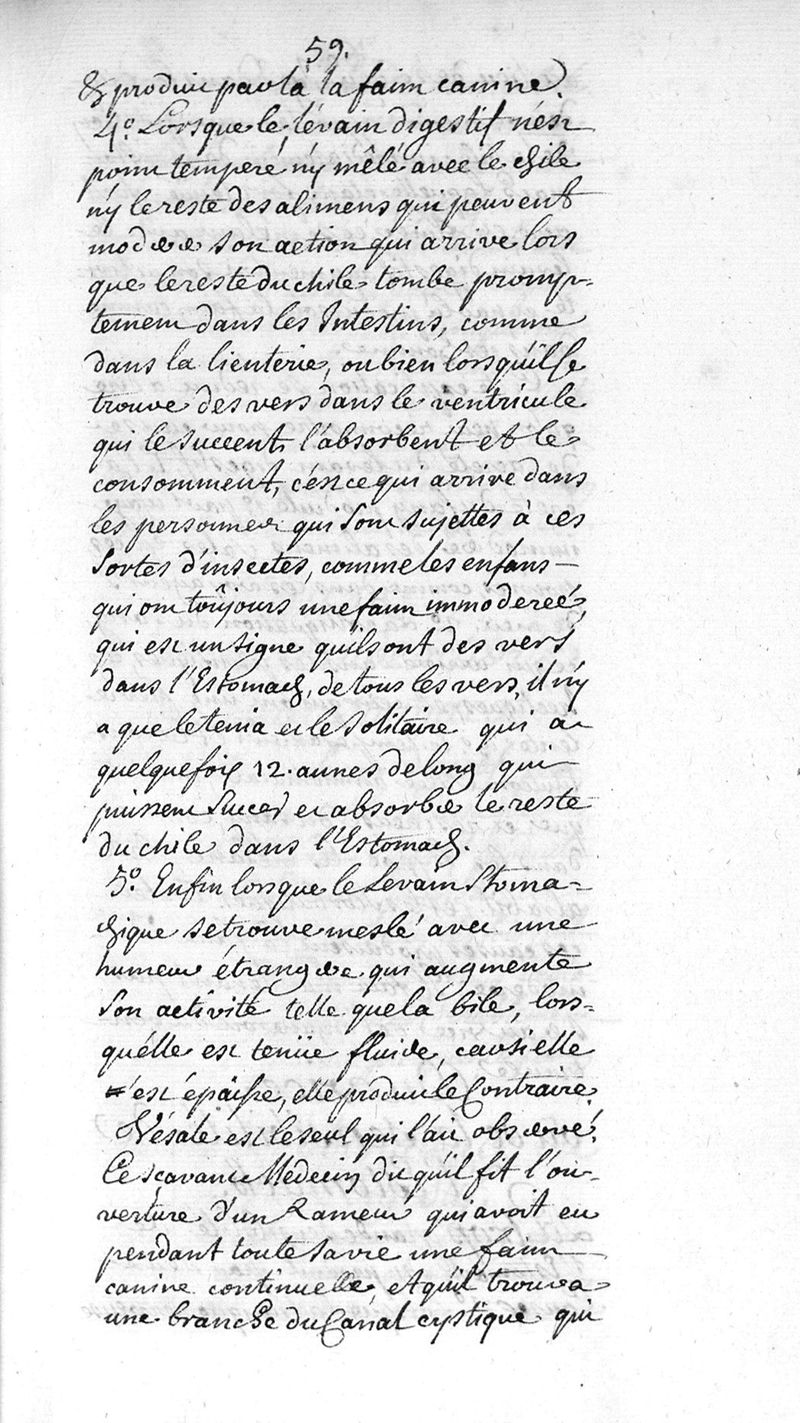 59.
& produit par là la faim canine.
4.° Lorsque le lévain digestif n'est
point temperé ny mêlé avec le chile
ny le reste des alimens qui peuvent
moderer son action qui arrive lors
que le reste du chile tombe promp-
tement dans les Intestins, comme
dans la lienterie, ou bien lorsqu'il se
trouve des vers dans le ventricule
qui le succent, l'absorbent et le
consomment, c'est ce qui arrive dans
les personnes qui sont sujettes à ces
sortes d'insectes, comme les enfans
qui ont toûjours une faim immoderée,
qui est un signe qu'ils ont des vers
dans l'Estomach, de tous les vers, il n'y
a que le tenia et le solitaire qui a
quelquefois 12. aunes de long qui
puissent succer et absorber le reste
du chile dans l'Estomach.
5.° Enfin lorsque le Levain Stoma-
chique se trouve meslé avec une
humeur étrangere qui augmente
son activité telle que la bile, lors-
qu'élle est tenüe fluide, car si elle
est épaisse, elle produit le Contraire.
Vésale est le seul qui l'ait observé.
Ce sçavant Médecin dit qu'il fit l'ou-
verture d'un Rameur qui avoit eu
pendant toute sa vie une faim
canine continuelle, et qu'il trouva
une branche du Canal cystique qui